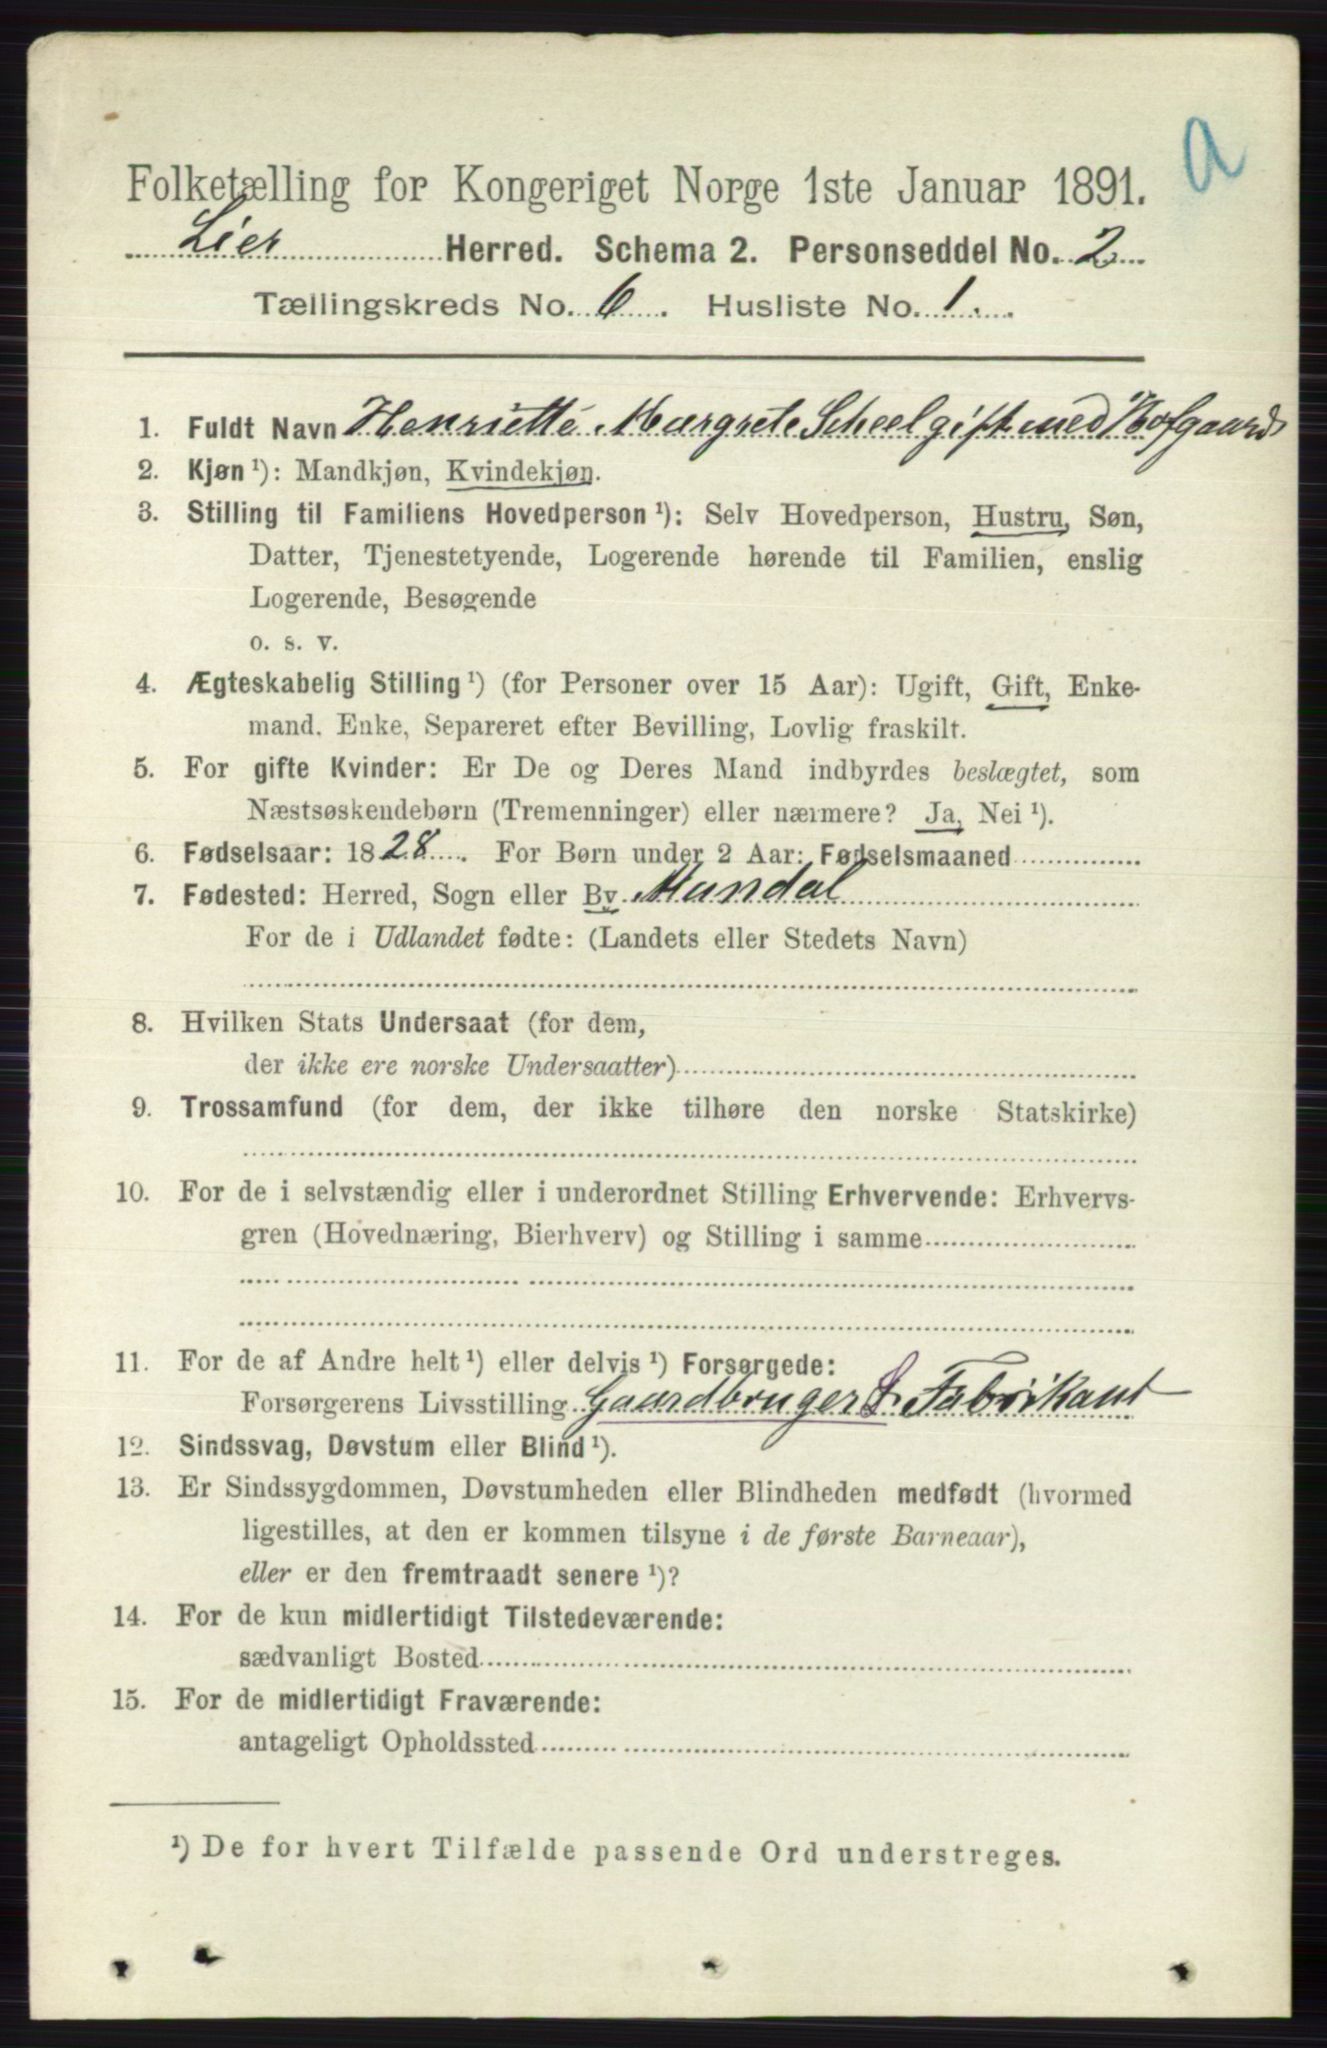 a
Folketælling for Kongeriget Norge 1ste Januar 1891.
Lier Herred. Schema 2. Personseddel No. 2
Tællingskreds No. 6. Husliste No. 1.
1. Fuldt Navn Henriette Margrete Scheel gift med Hofgaard
2. Kjøn ¹): Mandkjøn, Kvindekjøn.
3. Stilling til Familiens Hovedperson ¹): Selv Hovedperson, Hustru, Søn,
Datter, Tjenestetyende, Logerende hørende til Familien, enslig
Logerende, Besøgende
o. s. v.
4. Ægteskabelig Stilling ¹) (for Personer over 15 Aar): Ugift, Gift, Enke-
mand, Enke, Separeret efter Bevilling, Lovlig fraskilt.
5. For gifte Kvinder: Er De og Deres Mand indbyrdes beslægtet, som
Næstsøskendebørn (Tremenninger) eller nærmere? Ja, Nei ¹).
6. Fødselsaar: 1828. For Børn under 2 Aar: Fødselsmaaned
7. Fødested: Herred, Sogn eller By Mandal
For de i Udlandet fødte: (Landets eller Stedets Navn)
8. Hvilken Stats Undersaat (for dem,
der ikke ere norske Undersaatter)
9. Trossamfund (for dem, der ikke tilhøre den norske Statskirke)
10. For de i selvstændig eller i underordnet Stilling Erhvervende: Erhvervs-
gren (Hovednæring, Bierhverv) og Stilling i samme
11. For de af Andre helt ¹) eller delvis ¹) Forsørgede:
Forsørgerens Livsstilling Gaardbruger & Fabrikant
12. Sindssvag, Døvstum eller Blind ¹).
13. Er Sindssygdommen, Døvstumheden eller Blindheden medfødt (hvormed
ligestilles, at den er kommen tilsyne i de første Barneaar),
eller er den fremtraadt senere ¹)?
14. For de kun midlertidigt Tilstedeværende:
sædvanligt Bosted
15. For de midlertidigt Fraværende:
antageligt Opholdssted
¹) De for hvert Tilfælde passende Ord understreges.